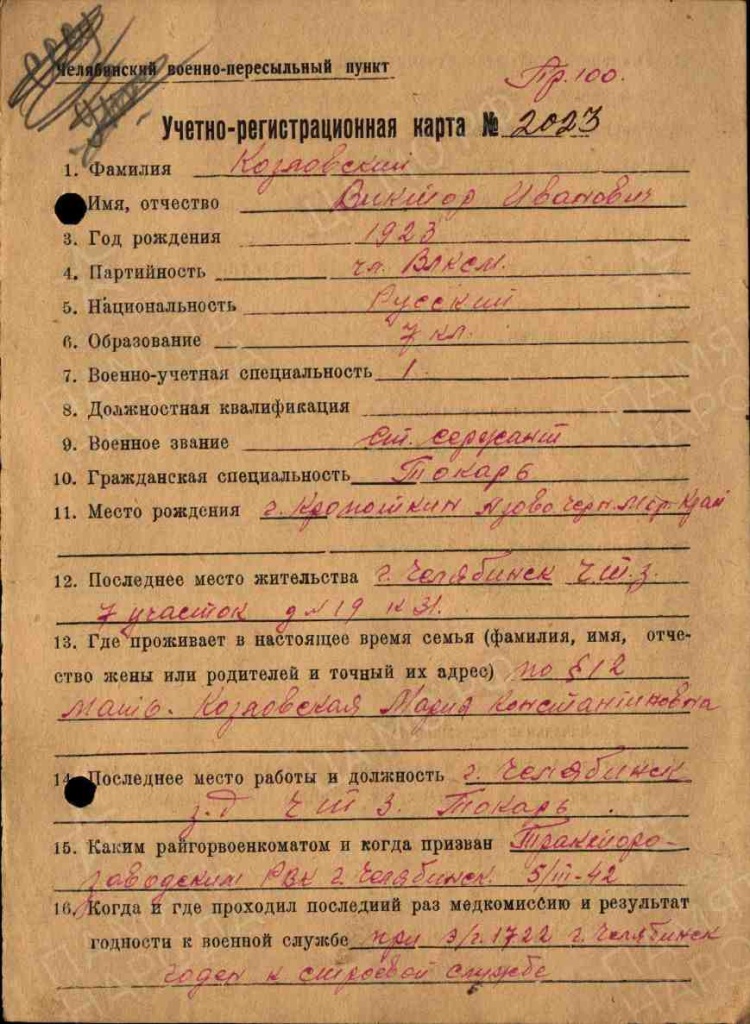 Челябинский военно-пересыльный пункт
Пр.100.
Учетно-регистрационная карта № 2023
1. Фамилия Козловский
Имя, отчество Виктор Иванович
3. Год рождения 1923
4. Партийность чл. Влксм.
5. Национальность Русский
6. Образование 7 кл.
7. Военно-учетная специальность 1
8. Должностная квалификация
9. Военное звание ст. сержант
10. Гражданская специальность Токарь
11. Место рождения г. Кропоткин Азово Черн. Мор. Край
12. Последнее место жительства г. Челябинск Ч.Т.З.
7 участок д N 19 к 31.
13. Где проживает в настоящее время семья (фамилия, имя, отче-
ство жены или родителей и точный их адрес) по § 12
Мать. Козловская Мария Константиновна
14. Последнее место работы и должность г. Челябинск
з.д Ч Т З. Токарь
15. Каким райгорвоенкоматом и когда призван Тракторо-
заводским РВК г. Челябинск 5/III-42
16. Когда и где проходил последний раз медкомиссию и результат
годности к военной службе при э/г. 1722 г. Челябинск
Годен к строевой службе